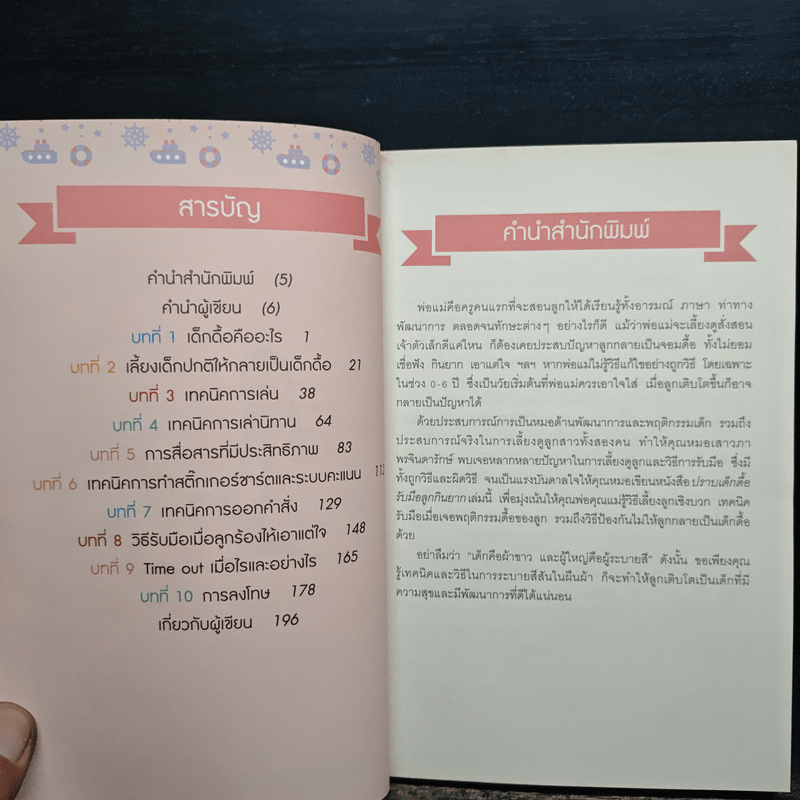 สารบัญ
คำนำสำนักพิมพ์ (5)
คำนำผู้เขียน (6)
บทที่ 1 เด็กดื้อคืออะไร 1
บทที่ 2 เลี้ยงเด็กปกติให้กลายเป็นเด็กดื้อ 21
บทที่ 3 เทคนิคการเล่น 38
บทที่ 4 เทคนิคการเล่านิทาน 64
บทที่ 5 การสื่อสารที่มีประสิทธิภาพ 83
บทที่ 6 เทคนิคการทำสติ๊กเกอร์ชาร์ตและระบบคะแนน
บทที่ 7 เทคนิคการออกคำสั่ง 129
บทที่ 8 วิธีรับมือเมื่อลูกร้องไห้เอาแต่ใจ 148
บทที่ 9 Time out เมื่อไรและอย่างไร 165
บทที่ 10 การลงโทษ 178
เกี่ยวกับผู้เขียน 196
คำนำสำนักพิมพ์
พ่อแม่คือครูคนแรกที่จะสอนลูกให้ได้เรียนรู้ทั้งอารมณ์ ภาษา ท่าทาง
พัฒนาการ ตลอดจนทักษะต่างๆ อย่างไรก็ดี แม้ว่าพ่อแม่จะเลี้ยงดูสั่งสอน
เจ้าตัวเล็กดีแค่ไหน ก็ต้องเคยประสบปัญหาลูกกลายเป็นจอมดื้อ ทั้งไม่ยอม
เชื่อฟัง กินยาก เอาแต่ใจ ฯลฯ หากพ่อแม่ไม่รู้วิธีแก้ไขอย่างถูกวิธี โดยเฉพาะ
ในช่วง 0-6 ปี ซึ่งเป็นวัยเริ่มต้นที่พ่อแม่ควรเอาใจใส่ เมื่อลูกเติบโตขึ้นก็อาจ
กลายเป็นปัญหาได้
ด้วยประสบการณ์การเป็นหมอด้านพัฒนาการและพฤติกรรมเด็ก รวมถึง
ประสบการณ์จริงในการเลี้ยงดูลูกสาวทั้งสองคน ทำให้คุณหมอเสาวภา
พรจินดารักษ์ พบเจอหลากหลายปัญหาในการเลี้ยงดูลูกและวิธีการรับมือ ซึ่งมี
ทั้งถูกวิธีและผิดวิธี จนเป็นแรงบันดาลใจให้คุณหมอเขียนหนังสือปราบเด็กดื้อ
รับมือลูกกินยากเล่มนี้ เพื่อมุ่งเน้นให้คุณพ่อคุณแม่รู้วิธีเลี้ยงลูกเชิงบวก เทคนิค
รับมือเมื่อเจอพฤติกรรมดื้อของลูก รวมถึงวิธีป้องกันไม่ให้ลูกกลายเป็นเด็กดื้อ
ด้วย
อย่าลืมว่า "เด็กคือผ้าขาว และผู้ใหญ่คือผู้ระบายสี" ดังนั้น ขอเพียงคุณ
รู้เทคนิคและวิธีในการระบายสีสันในผืนผ้า ก็จะทำให้ลูกเติบโตเป็นเด็กที่มี
ความสุขและมีพัฒนาการที่ดีได้แน่นอน